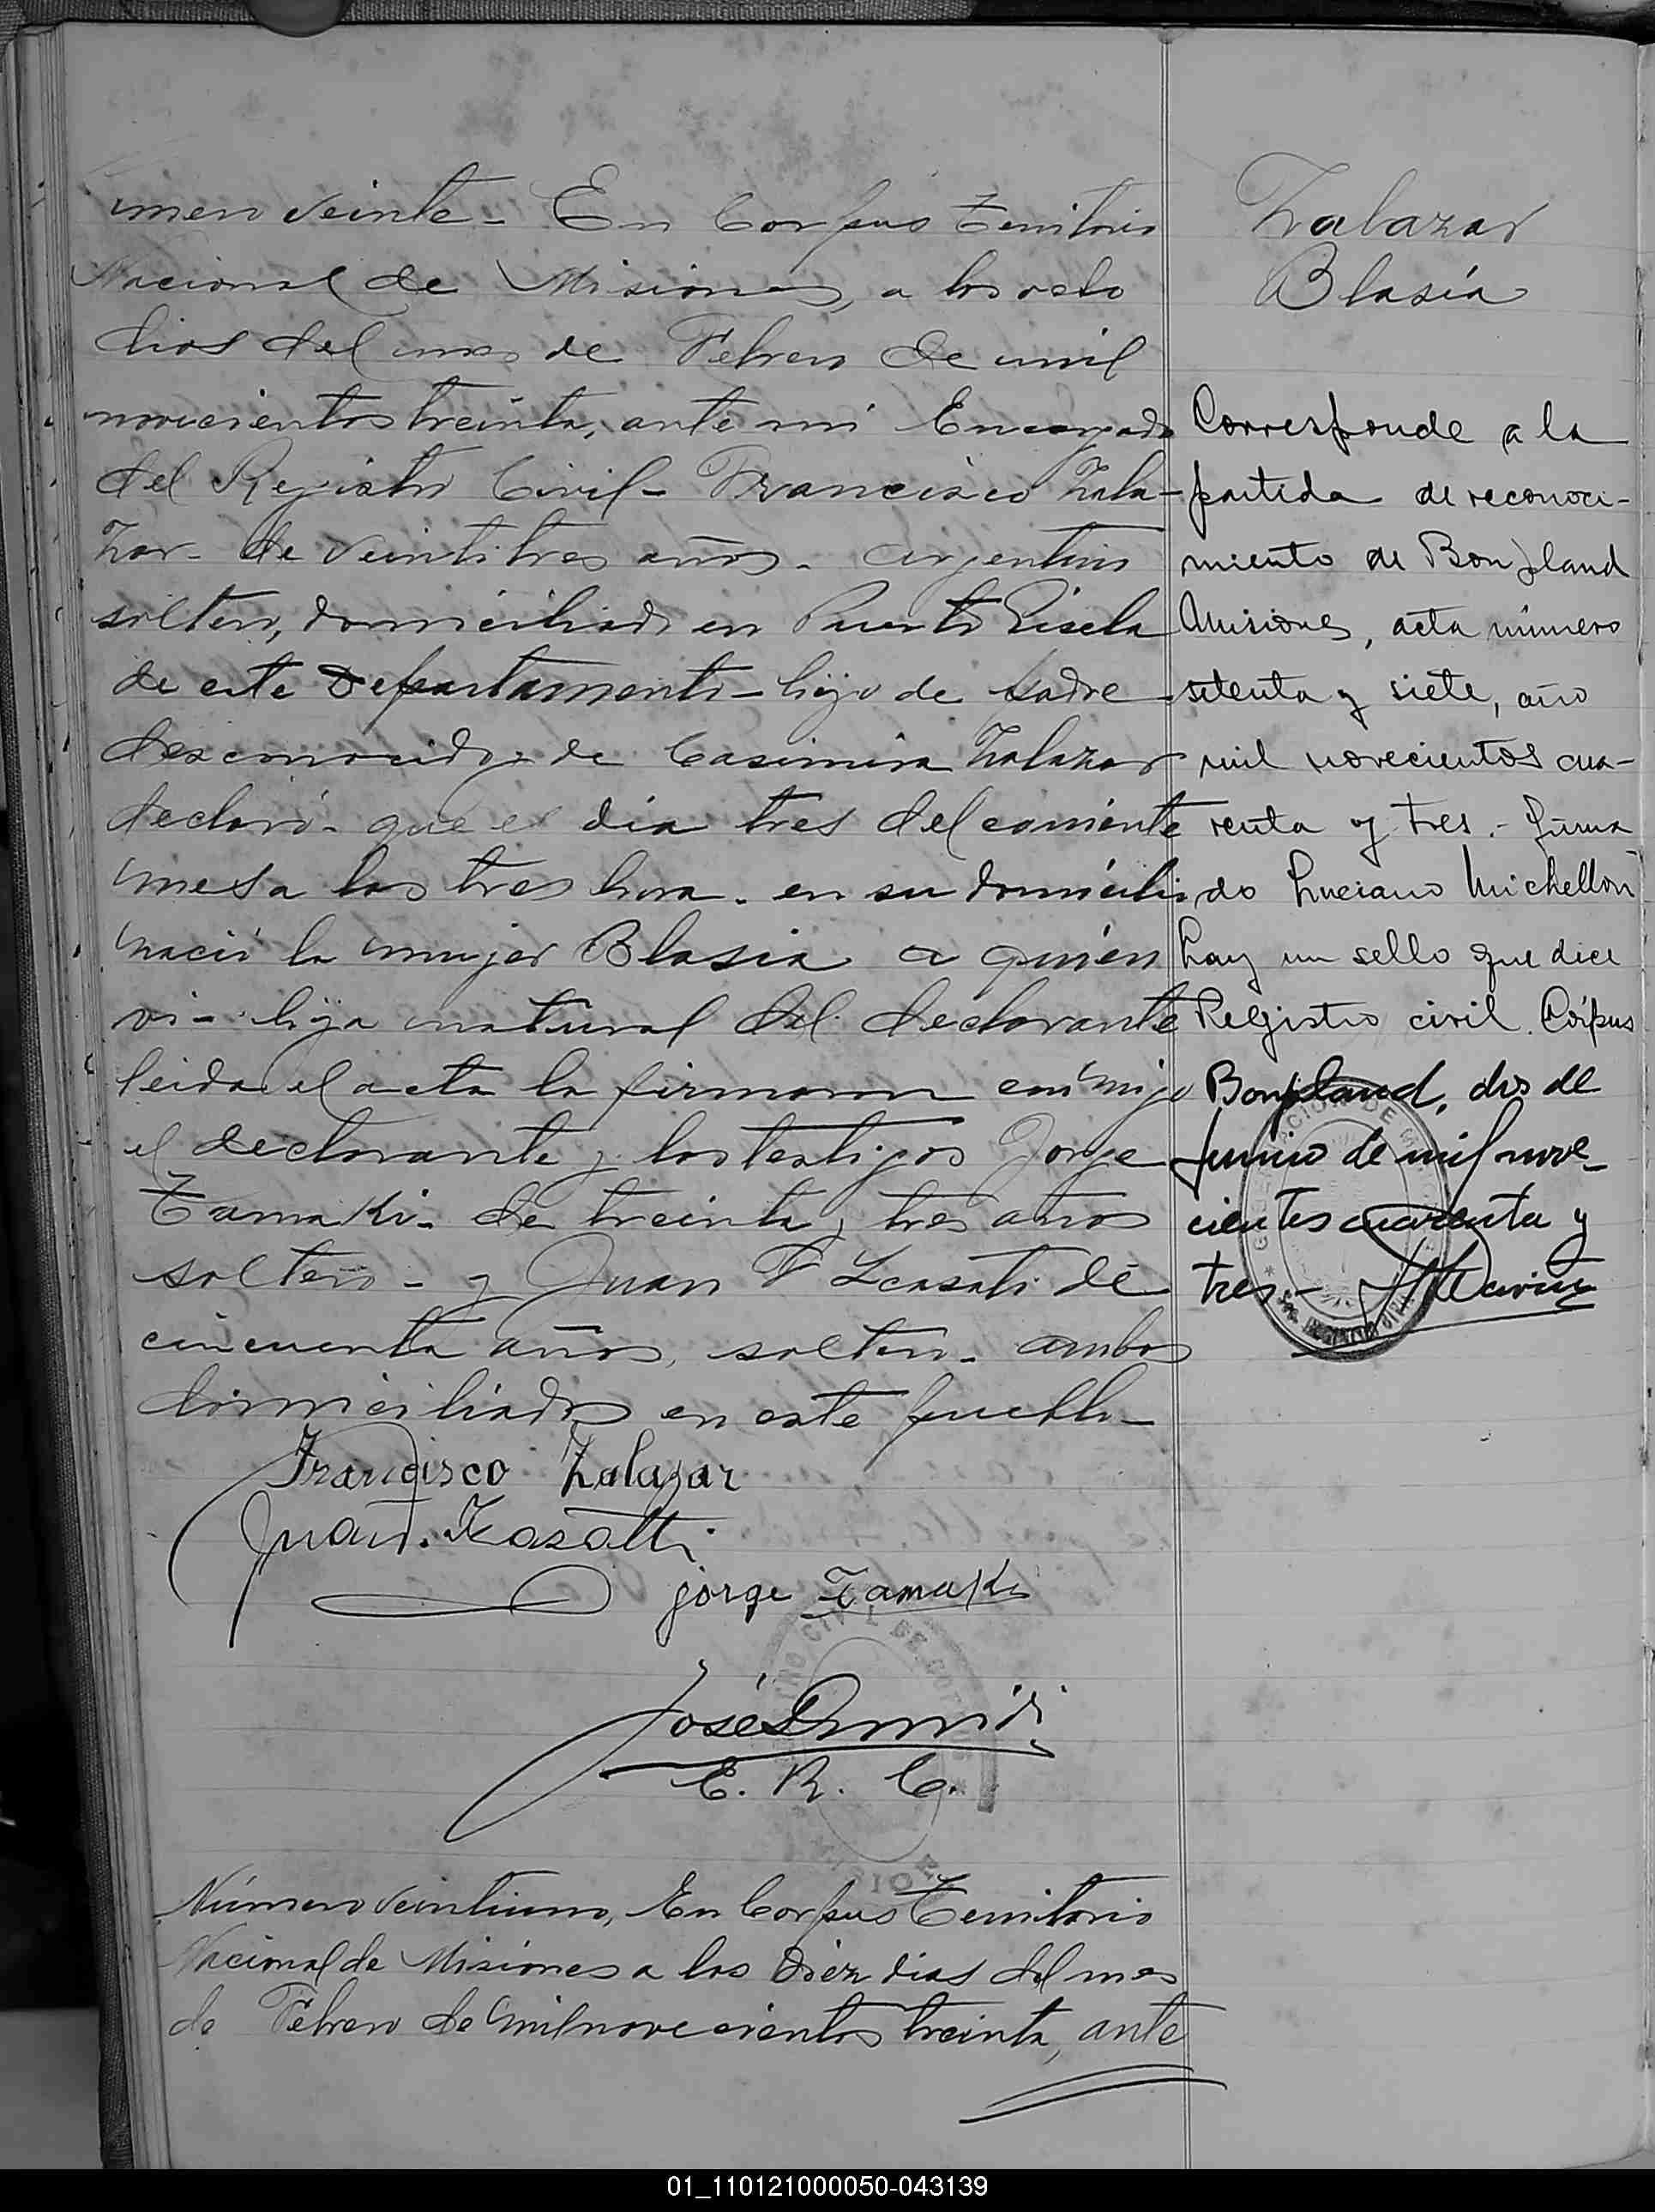 umero veinte - En Corpus Territorio
Nacional de Misiones, a los ocho
dias del mes de Febrero de mil
novecientos treinta, ante mi Encargado
del Registro Civil - Francisco Zala-
zar - de veintitres años - argentino
soltero, domiciliado en Puerto Gisela
de este Departamento - hijo de padre
desconocido y de Casimira Zalazar
declaró - que el dia tres del corriente
mes a las tres hora - en su domicilio
nació la mujer Blasia a quién
vi - hija natural del declarante
leida el acta la firmaron conmigo
el declarante y los testigos Jorge
Tamaki - de treinta y tres años
soltero - y Juan F Lcasati de
cincuenta años, soltero - ambos
domiciliados en este pueblo -
Francisco Zalazar
Juan
jorge Tamaki
José
E. R. C.
Número veintiuno, En Corpus Territorio
Nacional de Misiones a los Diez dias del mes
de Febrero de mil novecientos treinta, ante
Zalazar
Blasía
Corresponde a la
partida de reconoci-
miento de Bonpland
Misiones, acta número
setenta y siete, año
mil novecientos cua-
renta y tres. - firma
do Luciano Michellon
hay un sello que dice
Registro civil. Córpus
Bonpland, dos de
junio de mil nove-
cientos cuarenta y
tres -
01_110121000050-043139